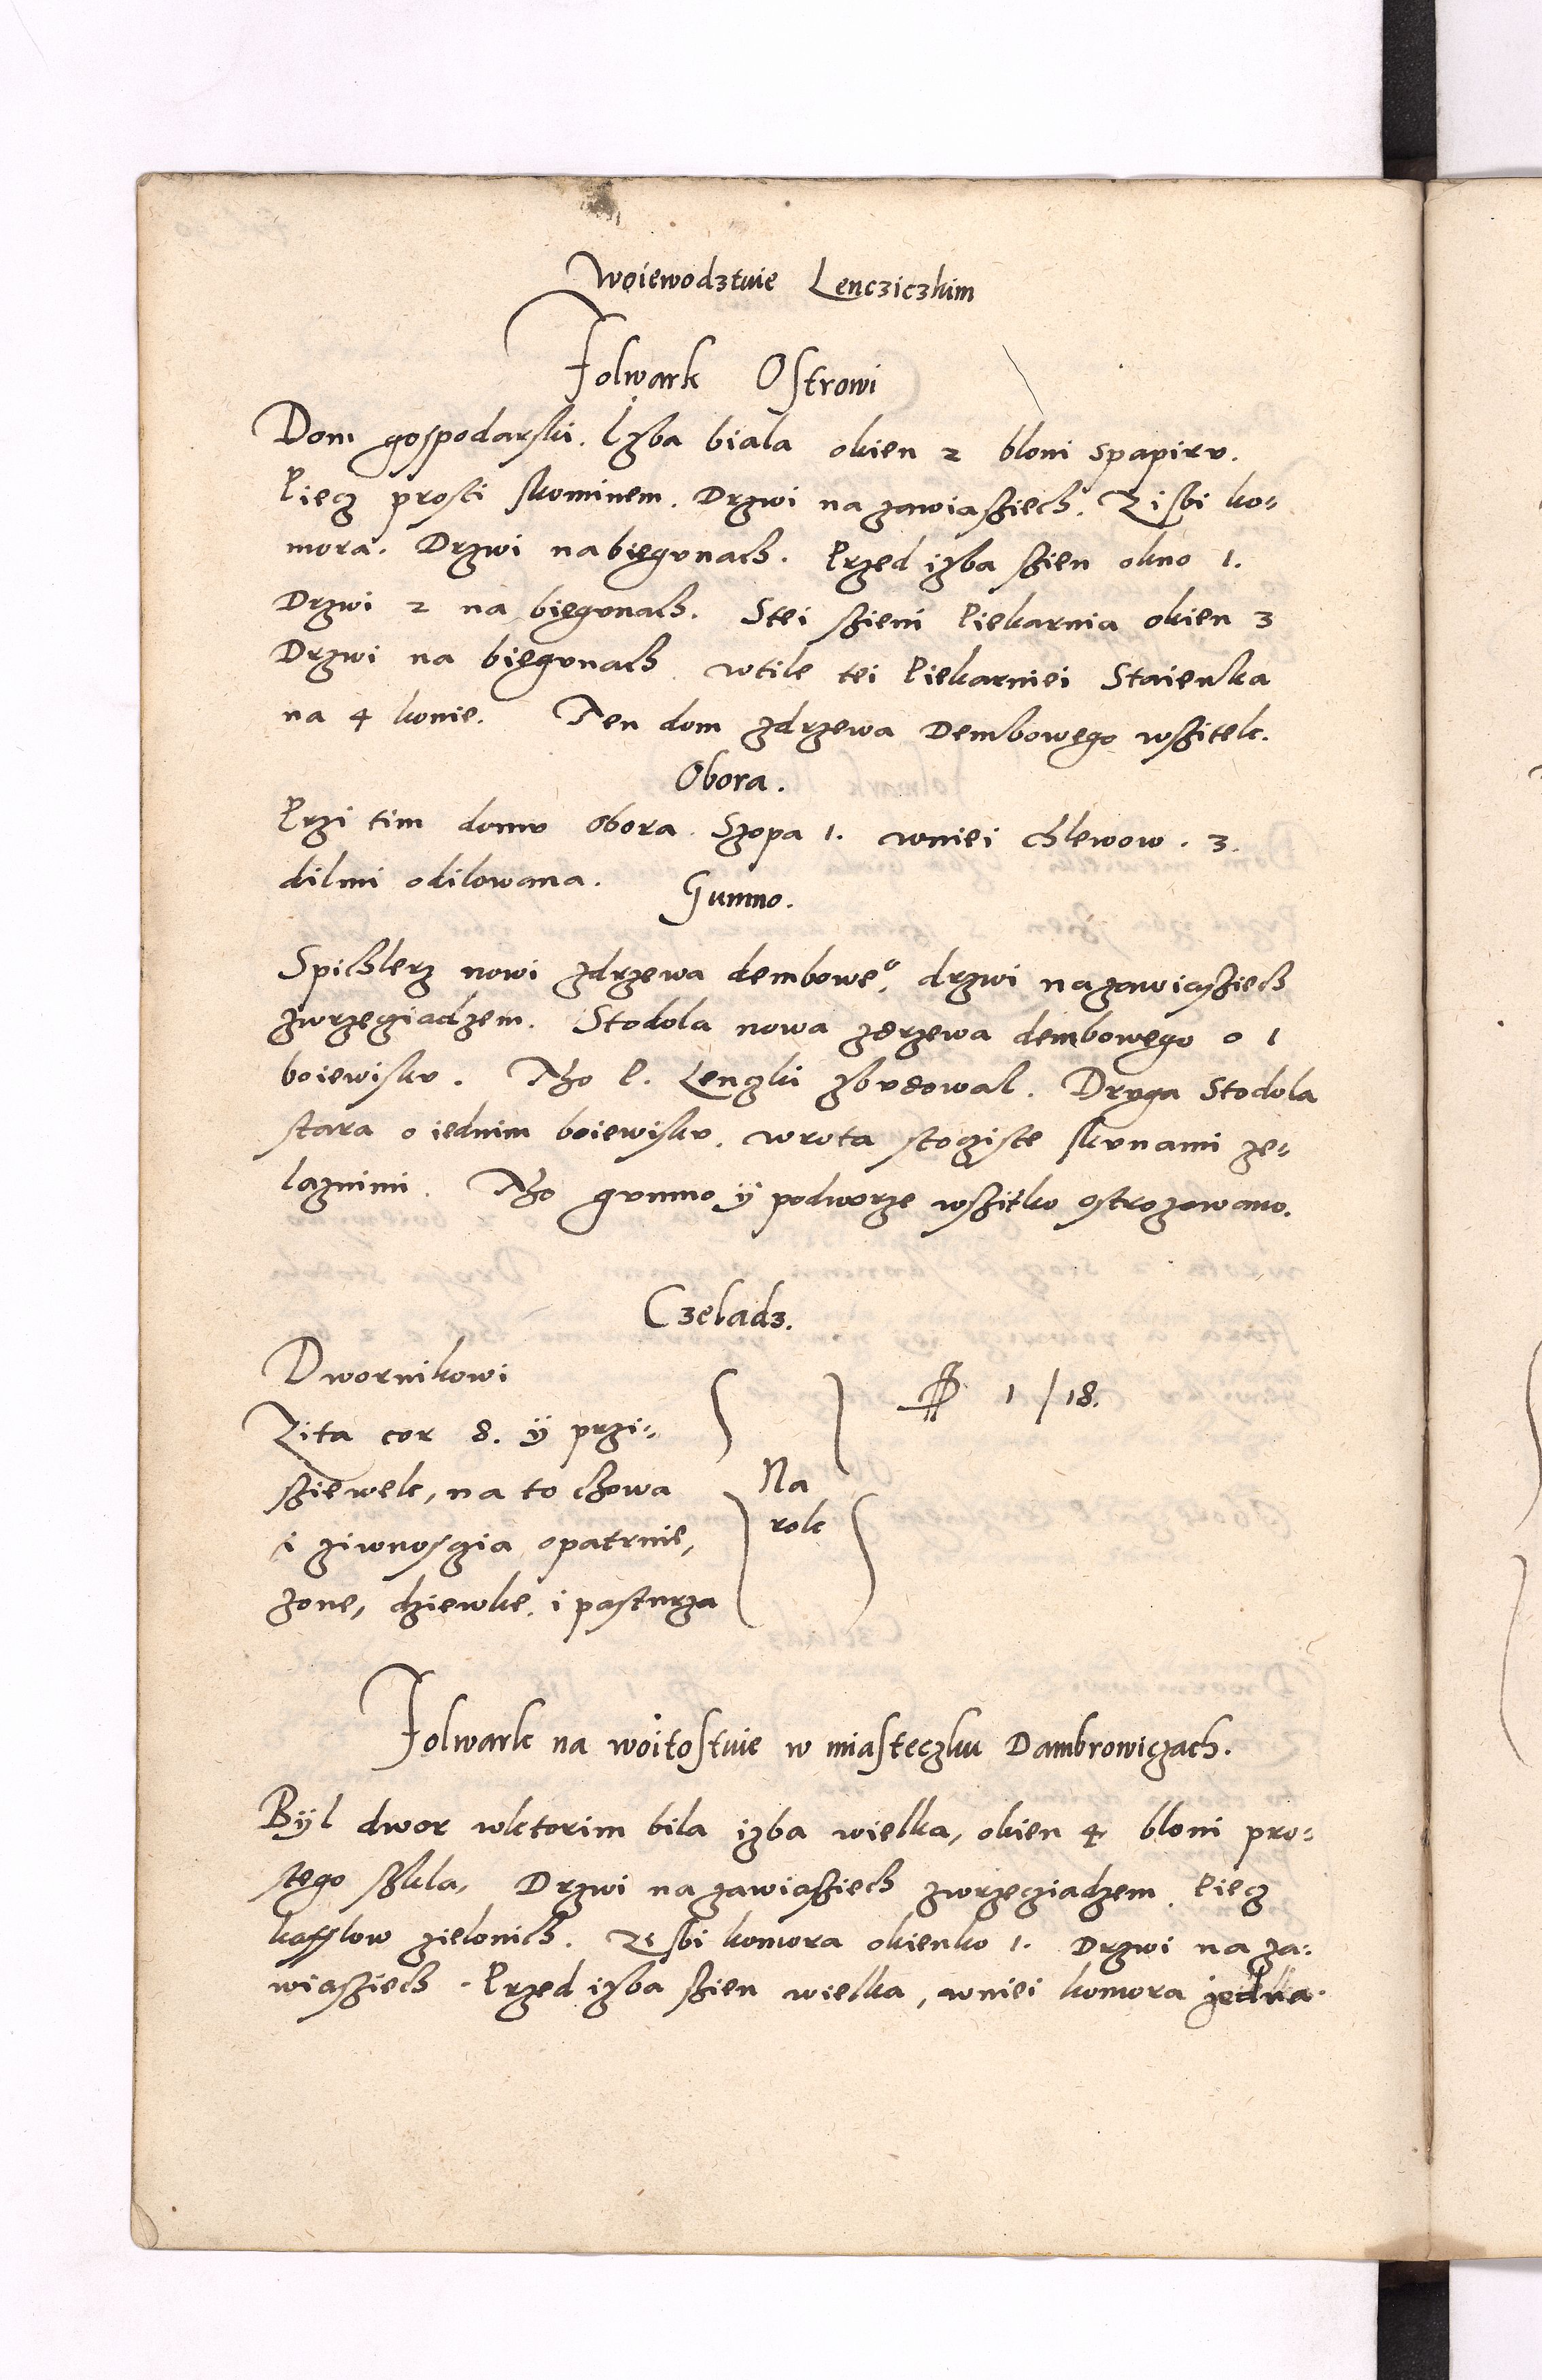 Woiewodztwie Lencziczkim
Folwark Ostrowi
Dom gospodarski. Izba biala okien 2 bloni spapiru.
Piecz prosti skominem. Drzwi na zawiasziech. Zisbi ko-
mora. Drzwi na biegunach. Przed izba szien okno 1.
Drzwi 2 na biegunach. Stei szieni Piekarnia okien 3
Drzwi na biegunach wtile tei Piekarniei Staienka
na 4 konie. Ten dom zdrzewa Dembowego wszitek.
Obora.
Przi tim domu Obora. Szopa 1. wniei chlewow. 3.
dilmi odilowana.
Gumno.
Spichlerz nowi zdrzewa dembowe°, drzwi na zawiasziech
zwrzecziadzem. Stodola nowa zdrzewa dembowego o 1
boiewisku. Tho P. Lenczki zbudowal. Druga Stodola
stara o iednim boiewisku. wrota stocziste skunami ze-
laznimi. Tho gumno ÿ podworze wszitko ostrozowano.
Czeladz.
Dwornikowi
Zita cor 8. ÿ przi-
sziewek, na to chowa
i ziwnosczia opatruie,
zone, dziewke. i pasturza
Na
role
1 / 18.
Folwark na woitostwie w miasteczku Dambrowiczach.
Bÿl dwor wktorim bila izba wielka, okien 4 bloni pro-
stego szkla, Drzwi na zawiasziech zwrzecziadzem. Piecz
kafflow zielonich. Zisbi komora okienko 1. Drzwi na za-
wiasziech. Przed izba szien wielka, wniei komora jedna.